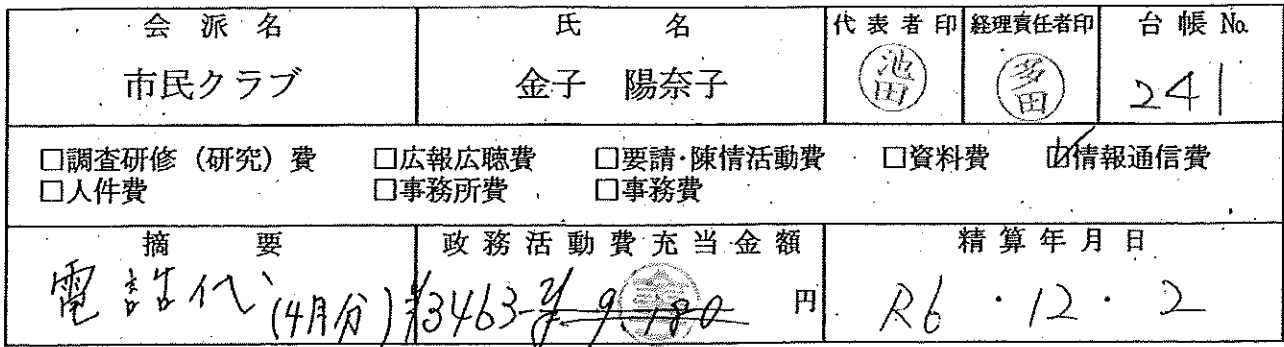 会派名 氏名 代表者印 経理責任者印 台帳No.
市民クラブ 金子 陽奈子 池田 多田 241
□調査研修（研究）費 □広報広聴費 □要請・陳情活動費 □資料費 ☑情報通信費
□人件費 □事務所費 □事務費
摘要 政務活動費充当金額 精算年月日
電話代(4月分) ¥3463 ¥9,180 円 R6・12・2